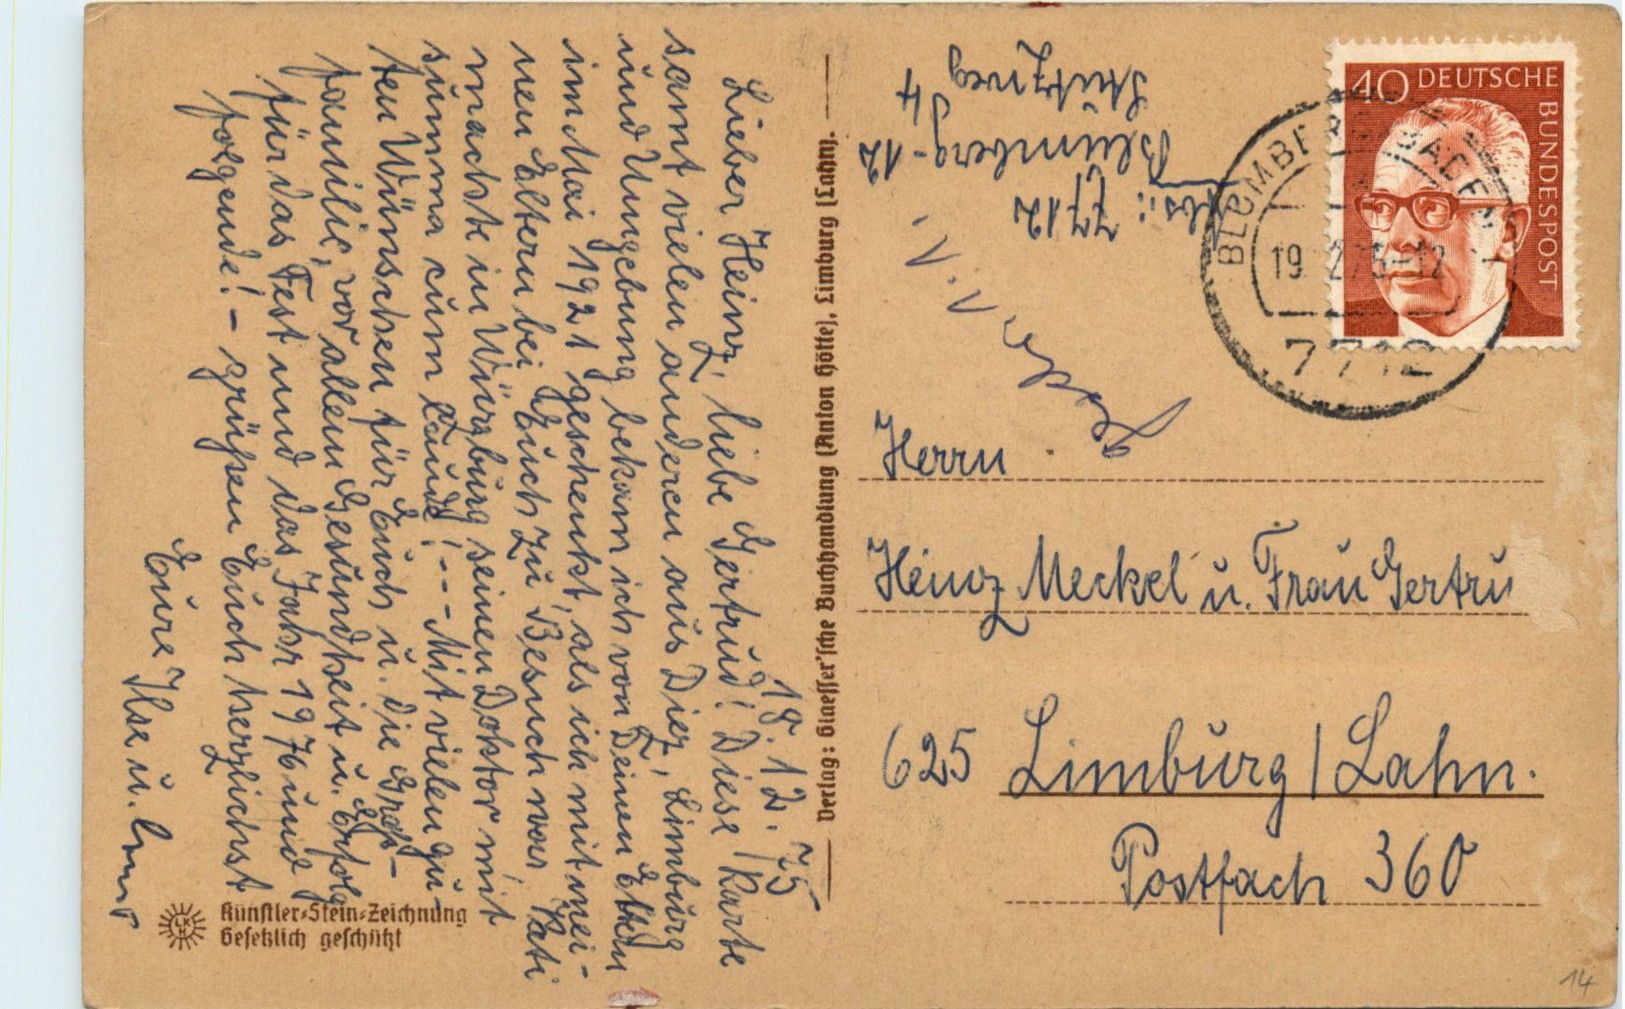 18. 12. 75
Lieber Heinz, liebe Gertrud! Diese Karte
samt vielen anderen aus Diez, Limburg
und Umgebung bekam ich von Deinen Eltern
im Mai 1921 geschenkt, als ich mit mei-
nen Eltern bei Euch zu Besuch war, Vati
machte in Würzburg seinen Doktor mit
summa cum laude! --- Mit vielen gu-
ten Wünschen für Euch u. die Groß-
familie, vor allem Gesundheit u. Erfolg
für das Fest und das Jahr 1976 und
folgende! - grüßen Euch herzlichst
Eure Ilse u. Ernst
Künstler-Stein-Zeichnung
Gesetzlich geschützt
LKH
Verlag: Glaesser'sche Buchhandlung (Anton Hötte), Limburg (Lahn).
Abs.: 7712
Blumberg-12
Stützweg
14
40 DEUTSCHE
BUNDESPOST
BLUMBERG, BADEN
19. 12. 75-12
7712
1. 1.
Herrn
Heinz Meckel u. Frau Gertru
625 Limburg / Lahn.
Postfach 360
14